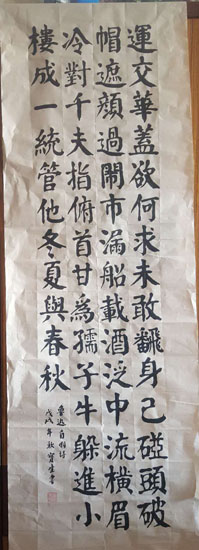 運交華蓋欲何求未敢飜身已碰頭破
帽遮顏過鬧市漏船載酒泛中流橫眉
冷對千夫指俯首甘為孺子牛躲進小
樓成一統管他冬夏與春秋
魯迅自嘲詩
戊戌年秋